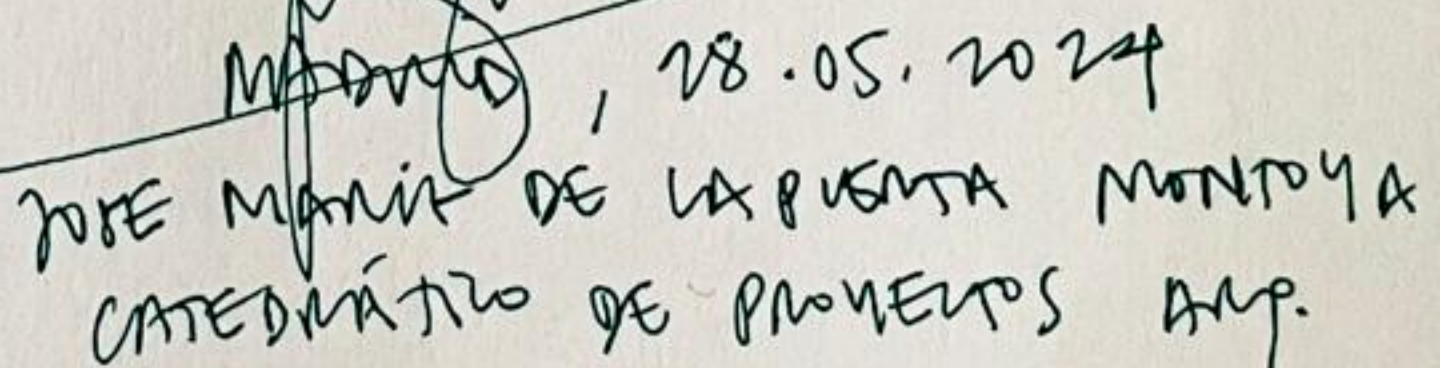 MADRID, 28.05.2024
JOSE MARIA DE LAPUERTA MONTOYA
CATEDRÁTICO DE PROYECTOS ARQ.